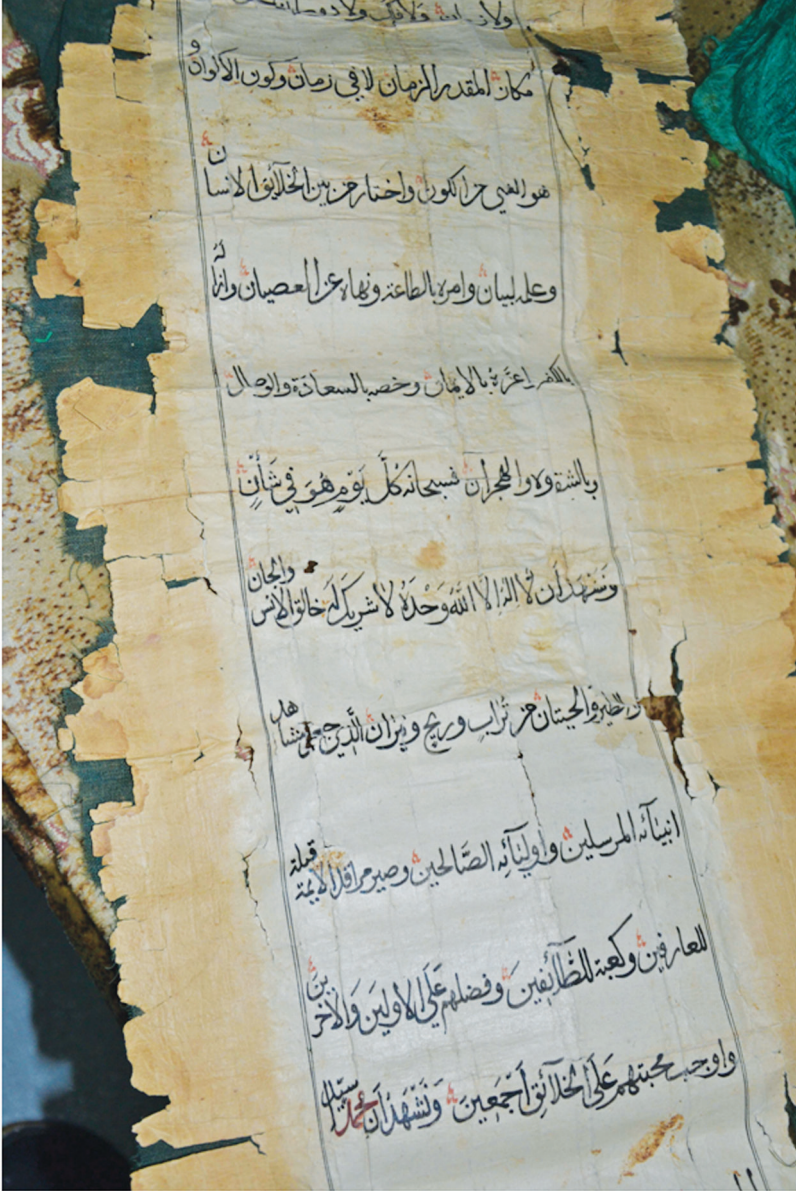 مكان المقدر الزمان لا في زمان وكون الاكوان و
هو الغني من اكوان واختار من بين الخلآئق الانسان
وعلمه لبيان وامره بالطاعة ونهاه عن العصيان واذله
بالكفر اعزه بالايمان وخصه بالسعادة والوصال
وبالشقوه والهجران فسبحانه كُلَّ يَوْمٍ هُوَ فِي شَأْنٍ
ونشهد ان لا اله الا الله وَحْدَهُ لا شريك له خالق الانس والجان
والطير والحيتان من تُراب وريح ونيران الَّذي جعل مشاهد
انبيآئه المرسلين واوليآئه الصَّالحين وصير مراقد الايمة قبلة
للعارفين وكعبة للطَّآئِفين وفضلهم عَلَى الاولين وَالاخرين
واوجب محبتهم عَلَى الخلآئق اَجْمَعين وَنَشْهَدُ اَن محمد سيد